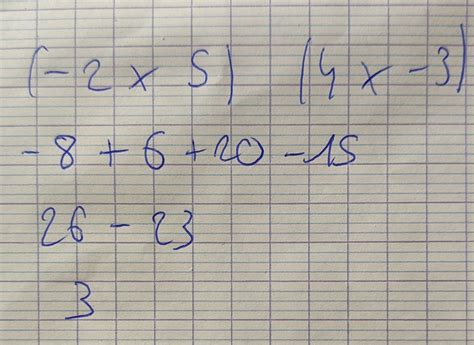 (-2 x 5) (4 x -3)
-8 + 6 + 20 - 15
26 - 23
3